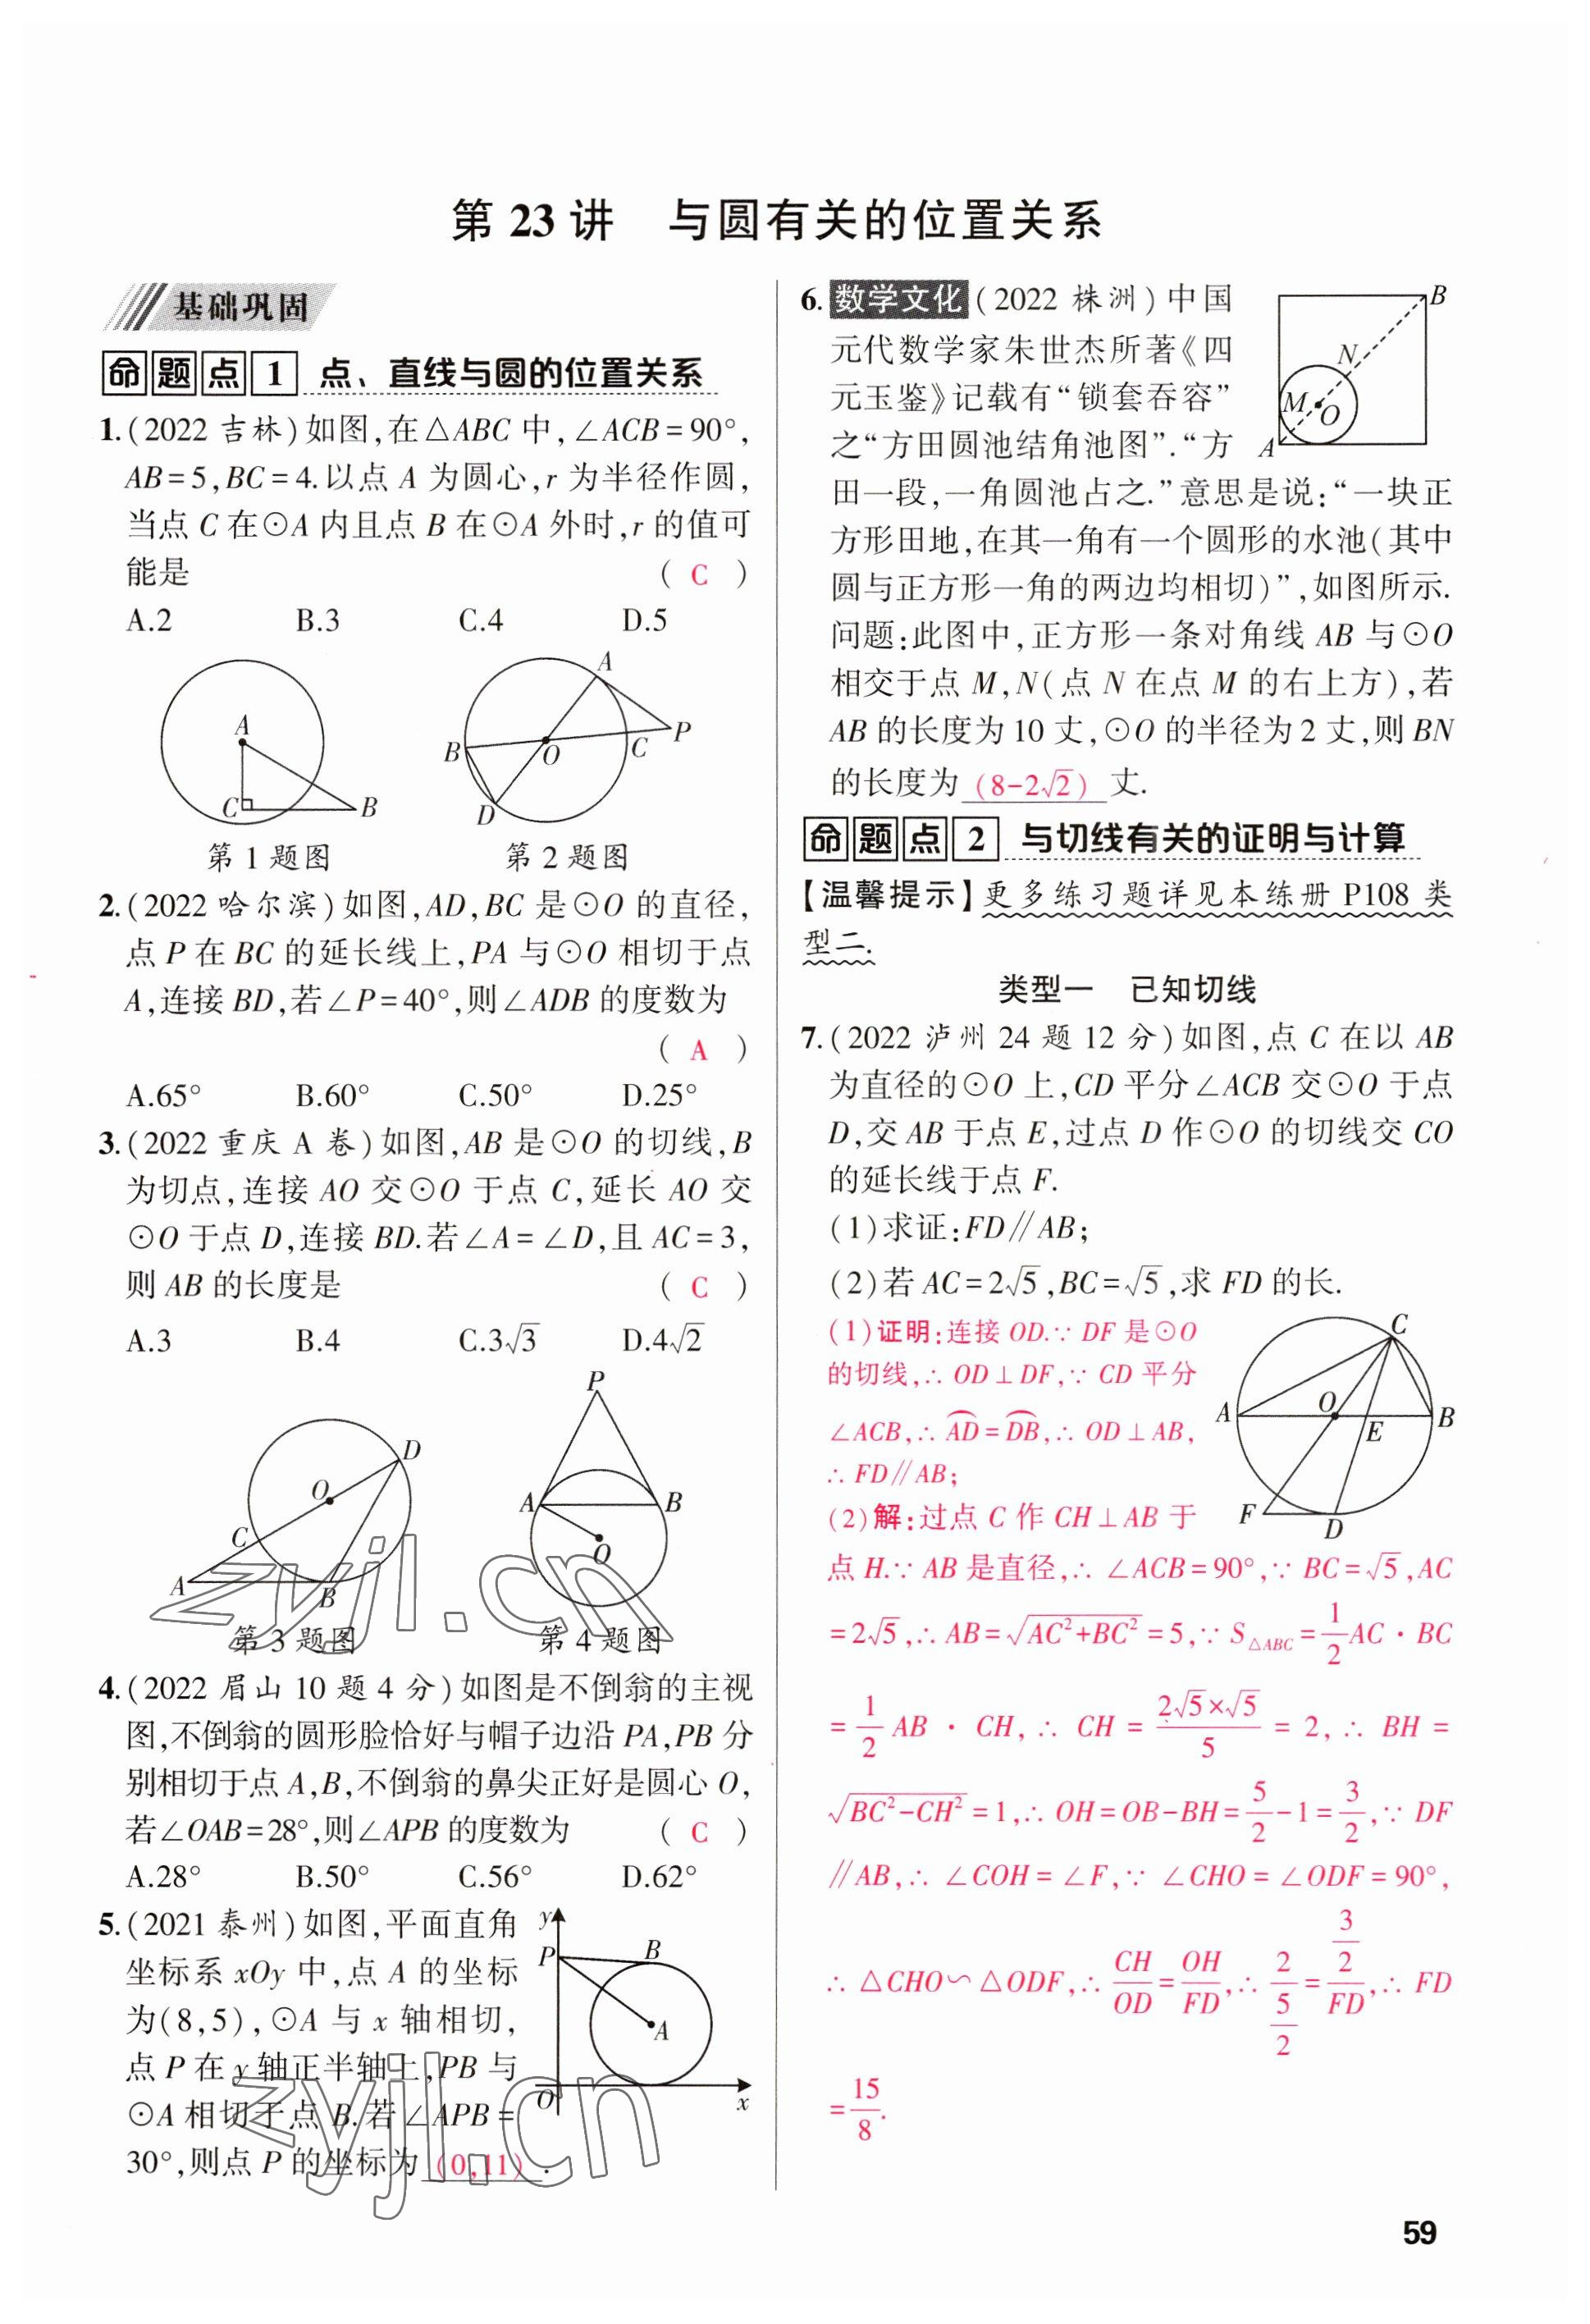 第 23 讲　与圆有关的位置关系
基础巩固
命题点 1 点、直线与圆的位置关系
1.(2022 吉林)如图,在△ABC 中,∠ACB=90°,
AB=5,BC=4.以点 A 为圆心,r 为半径作圆,
当点 C 在⊙A 内且点 B 在⊙A 外时,r 的值可
能是 ( C )
A.2 B.3 C.4 D.5
A
C
B
A
B
O
C
P
D
第 1 题图 第 2 题图
2.(2022 哈尔滨)如图,AD,BC 是⊙O 的直径,
点 P 在 BC 的延长线上,PA 与⊙O 相切于点
A,连接 BD,若∠P=40°,则∠ADB 的度数为
( A )
A.65° B.60° C.50° D.25°
3.(2022 重庆 A 卷)如图,AB 是⊙O 的切线,B
为切点,连接 AO 交⊙O 于点 C,延长 AO 交
⊙O 于点 D,连接 BD.若∠A=∠D,且 AC=3,
则 AB 的长度是 ( C )
A.3 B.4 C.3√3 D.4√2
D
O
C
A
B
P
A
B
O
第 3 题图 第 4 题图
4.(2022 眉山 10 题 4 分)如图是不倒翁的主视
图,不倒翁的圆形脸恰好与帽子边沿 PA,PB 分
别相切于点 A,B,不倒翁的鼻尖正好是圆心 O,
若∠OAB=28°,则∠APB 的度数为 ( C )
A.28° B.50° C.56° D.62°
5.(2021 泰州)如图,平面直角
坐标系 xOy 中,点 A 的坐标
为(8,5),⊙A 与 x 轴相切,
点 P 在 y 轴正半轴上,PB 与
⊙A 相切于点 B.若∠APB=
30°,则点 P 的坐标为 (0,11) .
y
P
B
A
O
x
zyjl.cn
zyjl.cn
6.数学文化(2022 株洲)中国
元代数学家朱世杰所著《四
元玉鉴》记载有“锁套吞容”
之“方田圆池结角池图”.“方
田一段,一角圆池占之.”意思是说:“一块正
方形田地,在其一角有一个圆形的水池(其中
圆与正方形一角的两边均相切)”,如图所示.
问题:此图中,正方形一条对角线 AB 与⊙O
相交于点 M,N(点 N 在点 M 的右上方),若
AB 的长度为 10 丈,⊙O 的半径为 2 丈,则 BN
的长度为 (8-2√2) 丈.
B
N
M
O
A
命题点 2 与切线有关的证明与计算
【温馨提示】更多练习题详见本练册 P108 类
型二.
类型一　已知切线
7.(2022 泸州 24 题 12 分)如图,点 C 在以 AB
为直径的⊙O 上,CD 平分∠ACB 交⊙O 于点
D,交 AB 于点 E,过点 D 作⊙O 的切线交 CO
的延长线于点 F.
(1)求证:FD∥AB;
(2)若 AC=2√5,BC=√5,求 FD 的长.
(1)证明:连接 OD.∵ DF 是⊙O
的切线,∴ OD⊥DF,∵ CD 平分
∠ACB,∴ A͡D=D͡B,∴ OD⊥AB,
∴ FD∥AB;
(2)解:过点 C 作 CH⊥AB 于
C
A
O
E
B
F
D
点 H.∵ AB 是直径,∴ ∠ACB=90°,∵ BC=√5,AC
=2√5,∴ AB=√(AC²+BC²)=5,∵ S△ABC=1/2 AC·BC
=1/2 AB·CH,∴ CH=(2√5×√5)/5=2,∴ BH=
√(BC²-CH²)=1,∴ OH=OB-BH=5/2-1=3/2,∵ DF
∥AB,∴ ∠COH=∠F,∵ ∠CHO=∠ODF=90°,
∴ △CHO∽△ODF,∴ CH/OD=OH/FD,∴ 2/(5/2)=(3/2)/FD,∴ FD
=15/8.
59